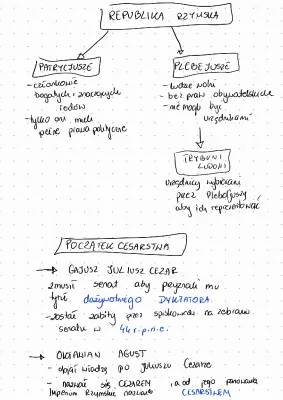 REPUBLIKA RZYMSKA
PATRYCJUSZE
PLEBEJUSZE
- członkowie
bogatych i znaczących
rodów
- tylko oni mieli
pełne prawa polityczne
- ludzie wolni
- bez praw obywatelskich
- nie mogli być
urzędnikami
TRYBUNI
LUDOWI
urzędnicy wybierani
przez Plebejuszy
aby ich reprezentować
POCZĄTEK CESARSTWA
→ GAJUSZ JULIUSZ CEZAR
zmusił senat aby przyznali mu
tytuł dożywotniego DYKTATORA.
- został zabity przez spiskowców na zebraniu
senatu w 44 r. p.n.e.
→ OKTAWIAN AGUST
- objął władzę po Juliuszu Cezarze
- nazwał się CEZAREM, a od jego panowania
Imperium Rzymskie nazwano CESARSTWEM